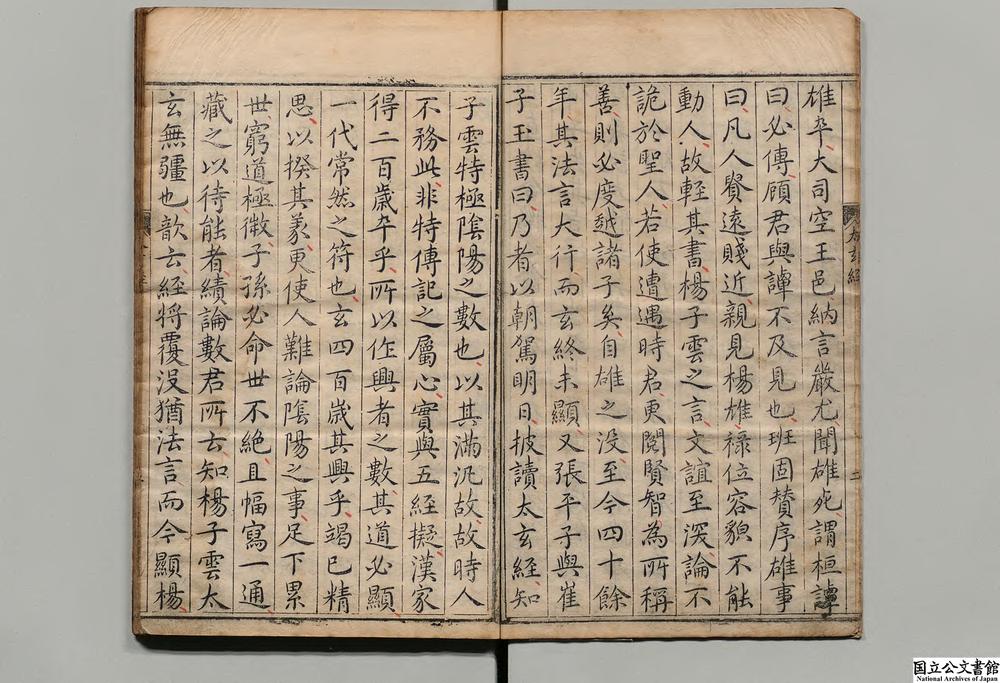 雄卒大司空王邑納言嚴尤聞雄死謂桓譚
曰必傳顧君與譚不及見也班固贊序雄事
曰凡人賤遠貴近親見楊雄祿位容貌不能
動人故輕其書楊子雲之言文誼至深論不
詭於聖人若使遭遇時君更閱賢智為所稱
善則必度越諸子矣自雄之沒至今四十餘
年其法言大行而玄終未顯又張平子與崔
子玉書曰乃者以朝駕明日披讀太玄經知
子雲特極陰陽之數也以其滿汎故故時人
不務此非特傳記之屬心實與五經擬漢家
得二百歲卒乎所以作興者之數其道必顯
一代常然之符也玄四百歲其興乎竭已精
思以揆其義更使人難論陰陽之事足下累
世窮道極微子孫必命世不絕且幅寫一通
藏之以待能者績論數君所云知楊子雲太
玄無疆也歆云經將覆沒猶法言而今顯楊
太玄經
国立公文書館
National Archives of Japan